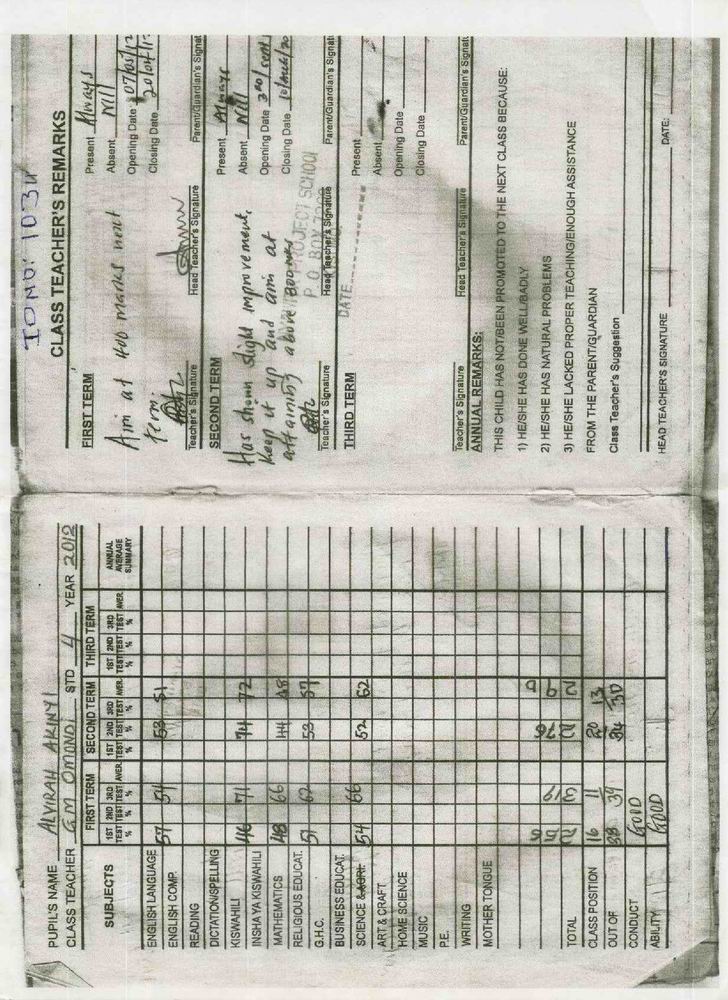 PUPIL'S NAME ALVIRAH AKINYI
CLASS TEACHER G.M OMONDI STD 4 YEAR 2012
SUBJECTS FIRST TERM SECOND TERM THIRD TERM ANNUAL AVERAGE SUMMARY
1ST TEST % 2ND TEST % 3RD TEST % AVER. 1ST TEST % 2ND TEST % 3RD TEST % AVER. 1ST TEST % 2ND TEST % 3RD TEST % AVER.
ENGLISH LANGUAGE 57 54 53 51
ENGLISH COMP.
READING
DICTATION/SPELLING
KISWAHILI 46 71 74 72
INSHA YA KISWAHILI
MATHEMATICS 48 66 44 48
RELIGIOUS EDUCAT. 51 62 53 57
G.H.C.
BUSINESS EDUCAT.
SCIENCE & AGRI 54 66 52 62
ART & CRAFT
HOME SCIENCE
MUSIC
P.E.
WRITING
MOTHER TONGUE
TOTAL 256 319 276 290
CLASS POSITION 16 11 20 13
OUT OF 38 39 34 30
CONDUCT GOOD
ABILITY GOOD
CLASS TEACHER'S REMARKS
FIRST TERM
Aim at 400 marks next
term.
Present Always
Absent Nill
Opening Date
Closing Date
Teacher's Signature Head Teacher's Signature Parent/Guardian's Signat
SECOND TERM
Has shown slight improvement,
keep it up and aim at
attaining above 300 mks
Present Always
Absent Nill
Opening Date
Closing Date
PROJECT SCHOOL
P. O. BOX
DATE
Teacher's Signature Head Teacher's Signature Parent/Guardian's Signat
THIRD TERM
Present
Absent
Opening Date
Closing Date
Teacher's Signature Head Teacher's Signature Parent/Guardian's Signat
ANNUAL REMARKS:
THIS CHILD HAS NOT/BEEN PROMOTED TO THE NEXT CLASS BECAUSE:
1) HE/SHE HAS DONE WELL/BADLY
2) HE/SHE HAS NATURAL PROBLEMS
3) HE/SHE LACKED PROPER TEACHING/ENOUGH ASSISTANCE
FROM THE PARENT/GUARDIAN
Class Teacher's Suggestion
HEAD TEACHER'S SIGNATURE DATE: